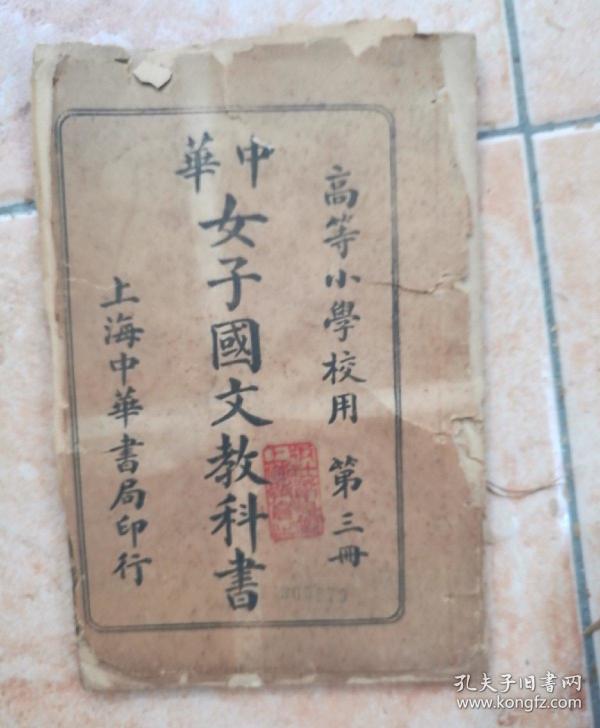 高等小學校用 第三冊
中華
女子國文教科書
上海中華書局印行
孔夫子旧书网
www.kongfz.com